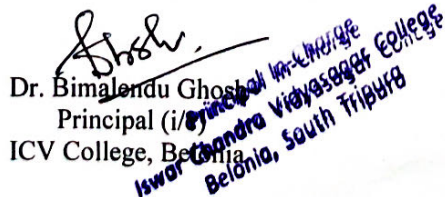 Dr. Bimalendu Ghosh
Principal (i/c)
ICV College, Belonia
Principal In-charge
Iswar Chandra Vidyasagar College
Belonia, South Tripura